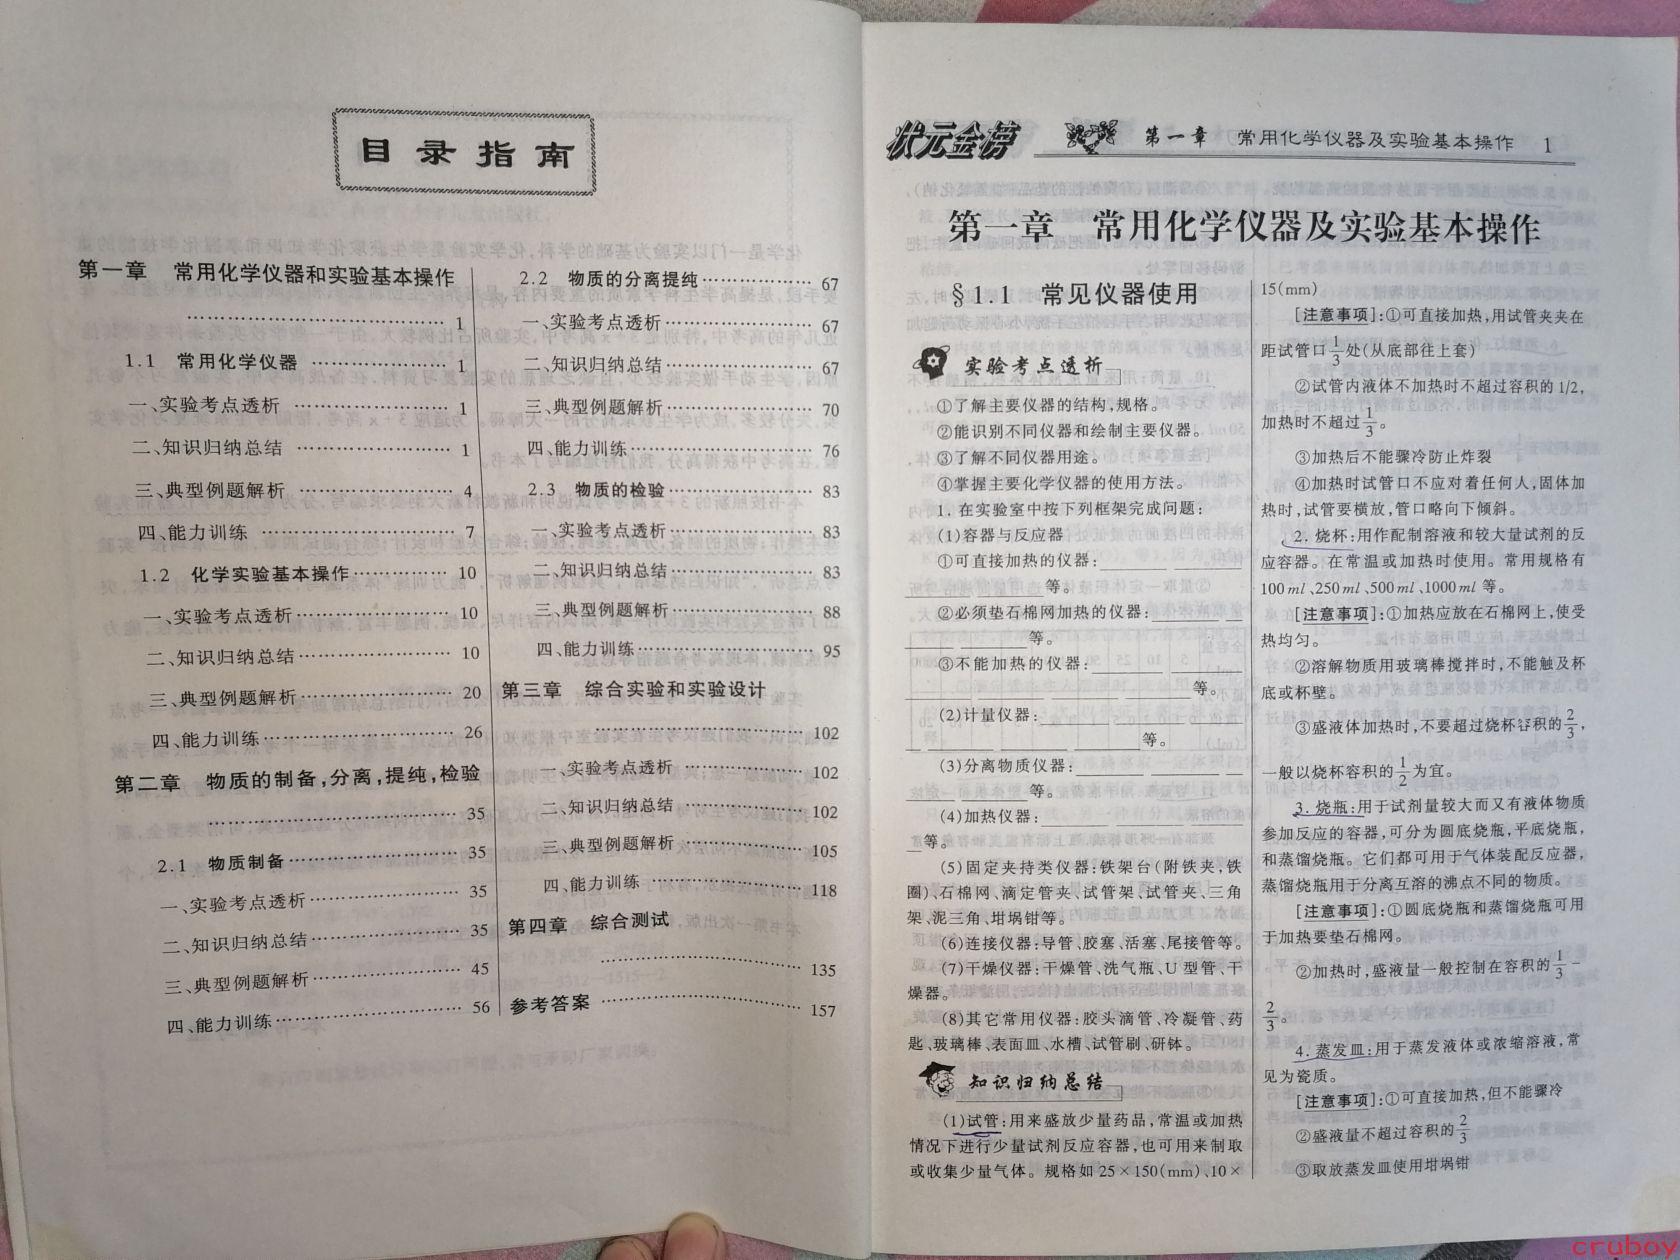 目录指南
第一章 常用化学仪器和实验基本操作
…………………… 1
1.1 常用化学仪器 …………………… 1
一、实验考点透析 …………………… 1
二、知识归纳总结 …………………… 1
三、典型例题解析 …………………… 4
四、能力训练 …………………… 7
1.2 化学实验基本操作 …………………… 10
一、实验考点透析 …………………… 10
二、知识归纳总结 …………………… 10
三、典型例题解析 …………………… 20
四、能力训练 …………………… 26
第二章 物质的制备,分离,提纯,检验
…………………… 35
2.1 物质制备 …………………… 35
一、实验考点透析 …………………… 35
二、知识归纳总结 …………………… 35
三、典型例题解析 …………………… 45
四、能力训练 …………………… 56
2.2 物质的分离提纯 …………………… 67
一、实验考点透析 …………………… 67
二、知识归纳总结 …………………… 67
三、典型例题解析 …………………… 70
四、能力训练 …………………… 76
2.3 物质的检验 …………………… 83
一、实验考点透析 …………………… 83
二、知识归纳总结 …………………… 83
三、典型例题解析 …………………… 88
四、能力训练 …………………… 95
第三章 综合实验和实验设计
…………………… 102
一、实验考点透析 …………………… 102
二、知识归纳总结 …………………… 102
三、典型例题解析 …………………… 105
四、能力训练 …………………… 118
第四章 综合测试
…………………… 135
参考答案 …………………… 157
状元金榜 第一章 常用化学仪器及实验基本操作 1
第一章 常用化学仪器及实验基本操作
§1.1 常见仪器使用
实验考点透析
①了解主要仪器的结构,规格。
②能识别不同仪器和绘制主要仪器。
③了解不同仪器用途。
④掌握主要化学仪器的使用方法。
1. 在实验室中按下列框架完成问题:
(1)容器与反应器
①可直接加热的仪器:______ ______
______ ______ 等。
②必须垫石棉网加热的仪器:______
______ ______ 等。
③不能加热的仪器:______ ______
______ ______ ______ ______等。
(2)计量仪器:______ ______ ______
______ ______ ______等。
(3)分离物质仪器:______ ______ ______
______ ______等。
(4)加热仪器:______ ______ ______
__等。
(5)固定夹持类仪器:铁架台(附铁夹,铁
圈)、石棉网、滴定管夹、试管架、试管夹、三角
架、泥三角、坩埚钳等。
(6)连接仪器:导管、胶塞、活塞、尾接管等。
(7)干燥仪器:干燥管、洗气瓶、U型管、干
燥器。
(8)其它常用仪器:胶头滴管、冷凝管、药
匙、玻璃棒、表面皿、水槽、试管刷、研钵。
知识归纳总结
(1)试管:用来盛放少量药品,常温或加热
情况下进行少量试剂反应容器,也可用来制取
或收集少量气体。规格如25×150(mm)、10×
15(mm)
[注意事项]:①可直接加热,用试管夹夹在
距试管口1/3处(从底部往上套)
②试管内液体不加热时不超过容积的1/2,
加热时不超过1/3。
③加热后不能骤冷防止炸裂
④加热时试管口不应对着任何人,固体加
热时,试管要横放,管口略向下倾斜。
2. 烧杯:用作配制溶液和较大量试剂的反
应容器。在常温或加热时使用。常用规格有
100ml、250ml、500ml、1000ml等。
[注意事项]:①加热应放在石棉网上,使受
热均匀。
②溶解物质用玻璃棒搅拌时,不能触及杯
底或杯壁。
③盛液体加热时,不要超过烧杯容积的2/3,
一般以烧杯容积的1/2为宜。
3. 烧瓶:用于试剂量较大而又有液体物质
参加反应的容器,可分为圆底烧瓶,平底烧瓶,
和蒸馏烧瓶。它们都可用于气体装配反应器,
蒸馏烧瓶用于分离互溶的沸点不同的物质。
[注意事项]:①圆底烧瓶和蒸馏烧瓶可用
于加热要垫石棉网。
②加热时,盛液量一般控制在容积的1/3-
2/3。
4. 蒸发皿:用于蒸发液体或浓缩溶液,常
见为瓷质。
[注意事项]:①可直接加热,但不能骤冷
②盛液量不超过容积的2/3
③取放蒸发皿使用坩埚钳
cruboy